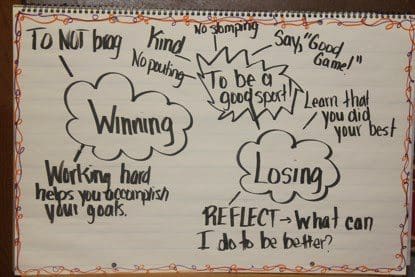 To NOT brag
Kind
No pouting
No stomping
Say, "Good
Game!"
To be a
good sport!
Winning
Learn that
you did
your best
Working hard
helps you accomplish
your goals.
Losing
REFLECT → What can
I do to be better?